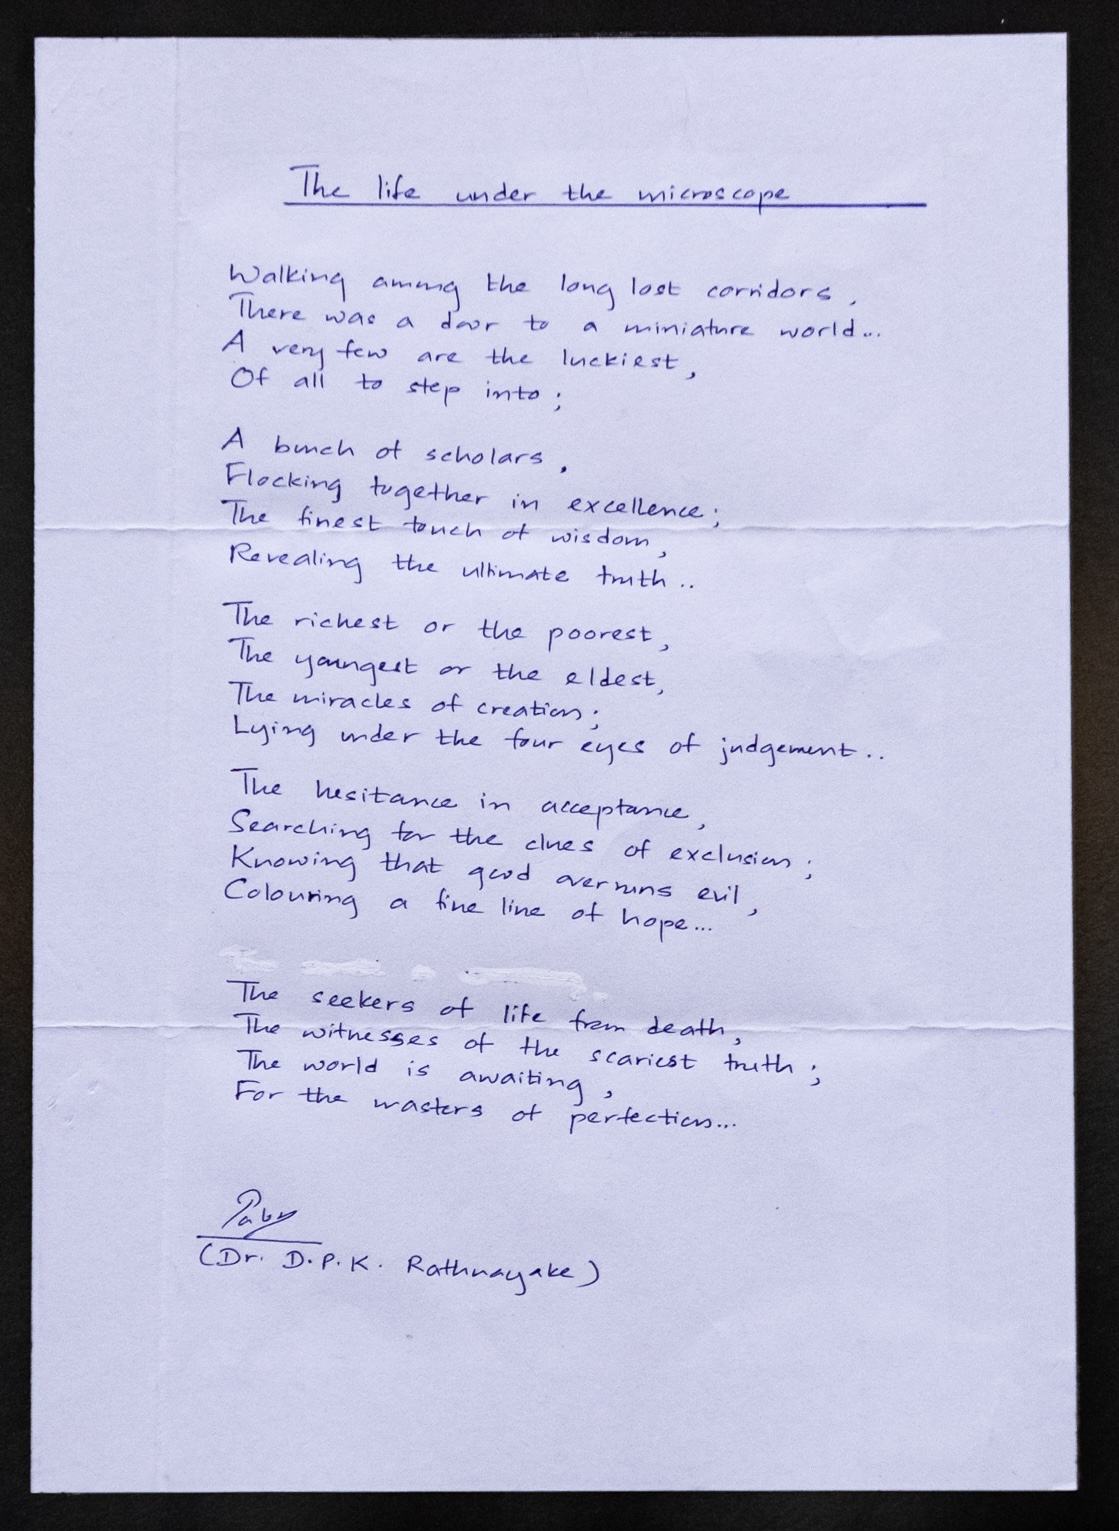 The life under the microscope
Walking among the long lost corridors,
There was a door to a miniature world...
A very few are the luckiest,
Of all to step into;
A bunch of scholars,
Flocking together in excellence;
The finest touch of wisdom,
Revealing the ultimate truth..
The richest or the poorest,
The youngest or the eldest,
The miracles of creation;
Lying under the four eyes of judgement..
The hesitance in acceptance,
Searching for the clues of exclusion;
Knowing that good overruns evil,
Colouring a fine line of hope...
The seekers of life from death,
The witnesses of the scariest truth;
The world is awaiting,
For the masters of perfection...
(Dr. D.P.K. Rathnayake)